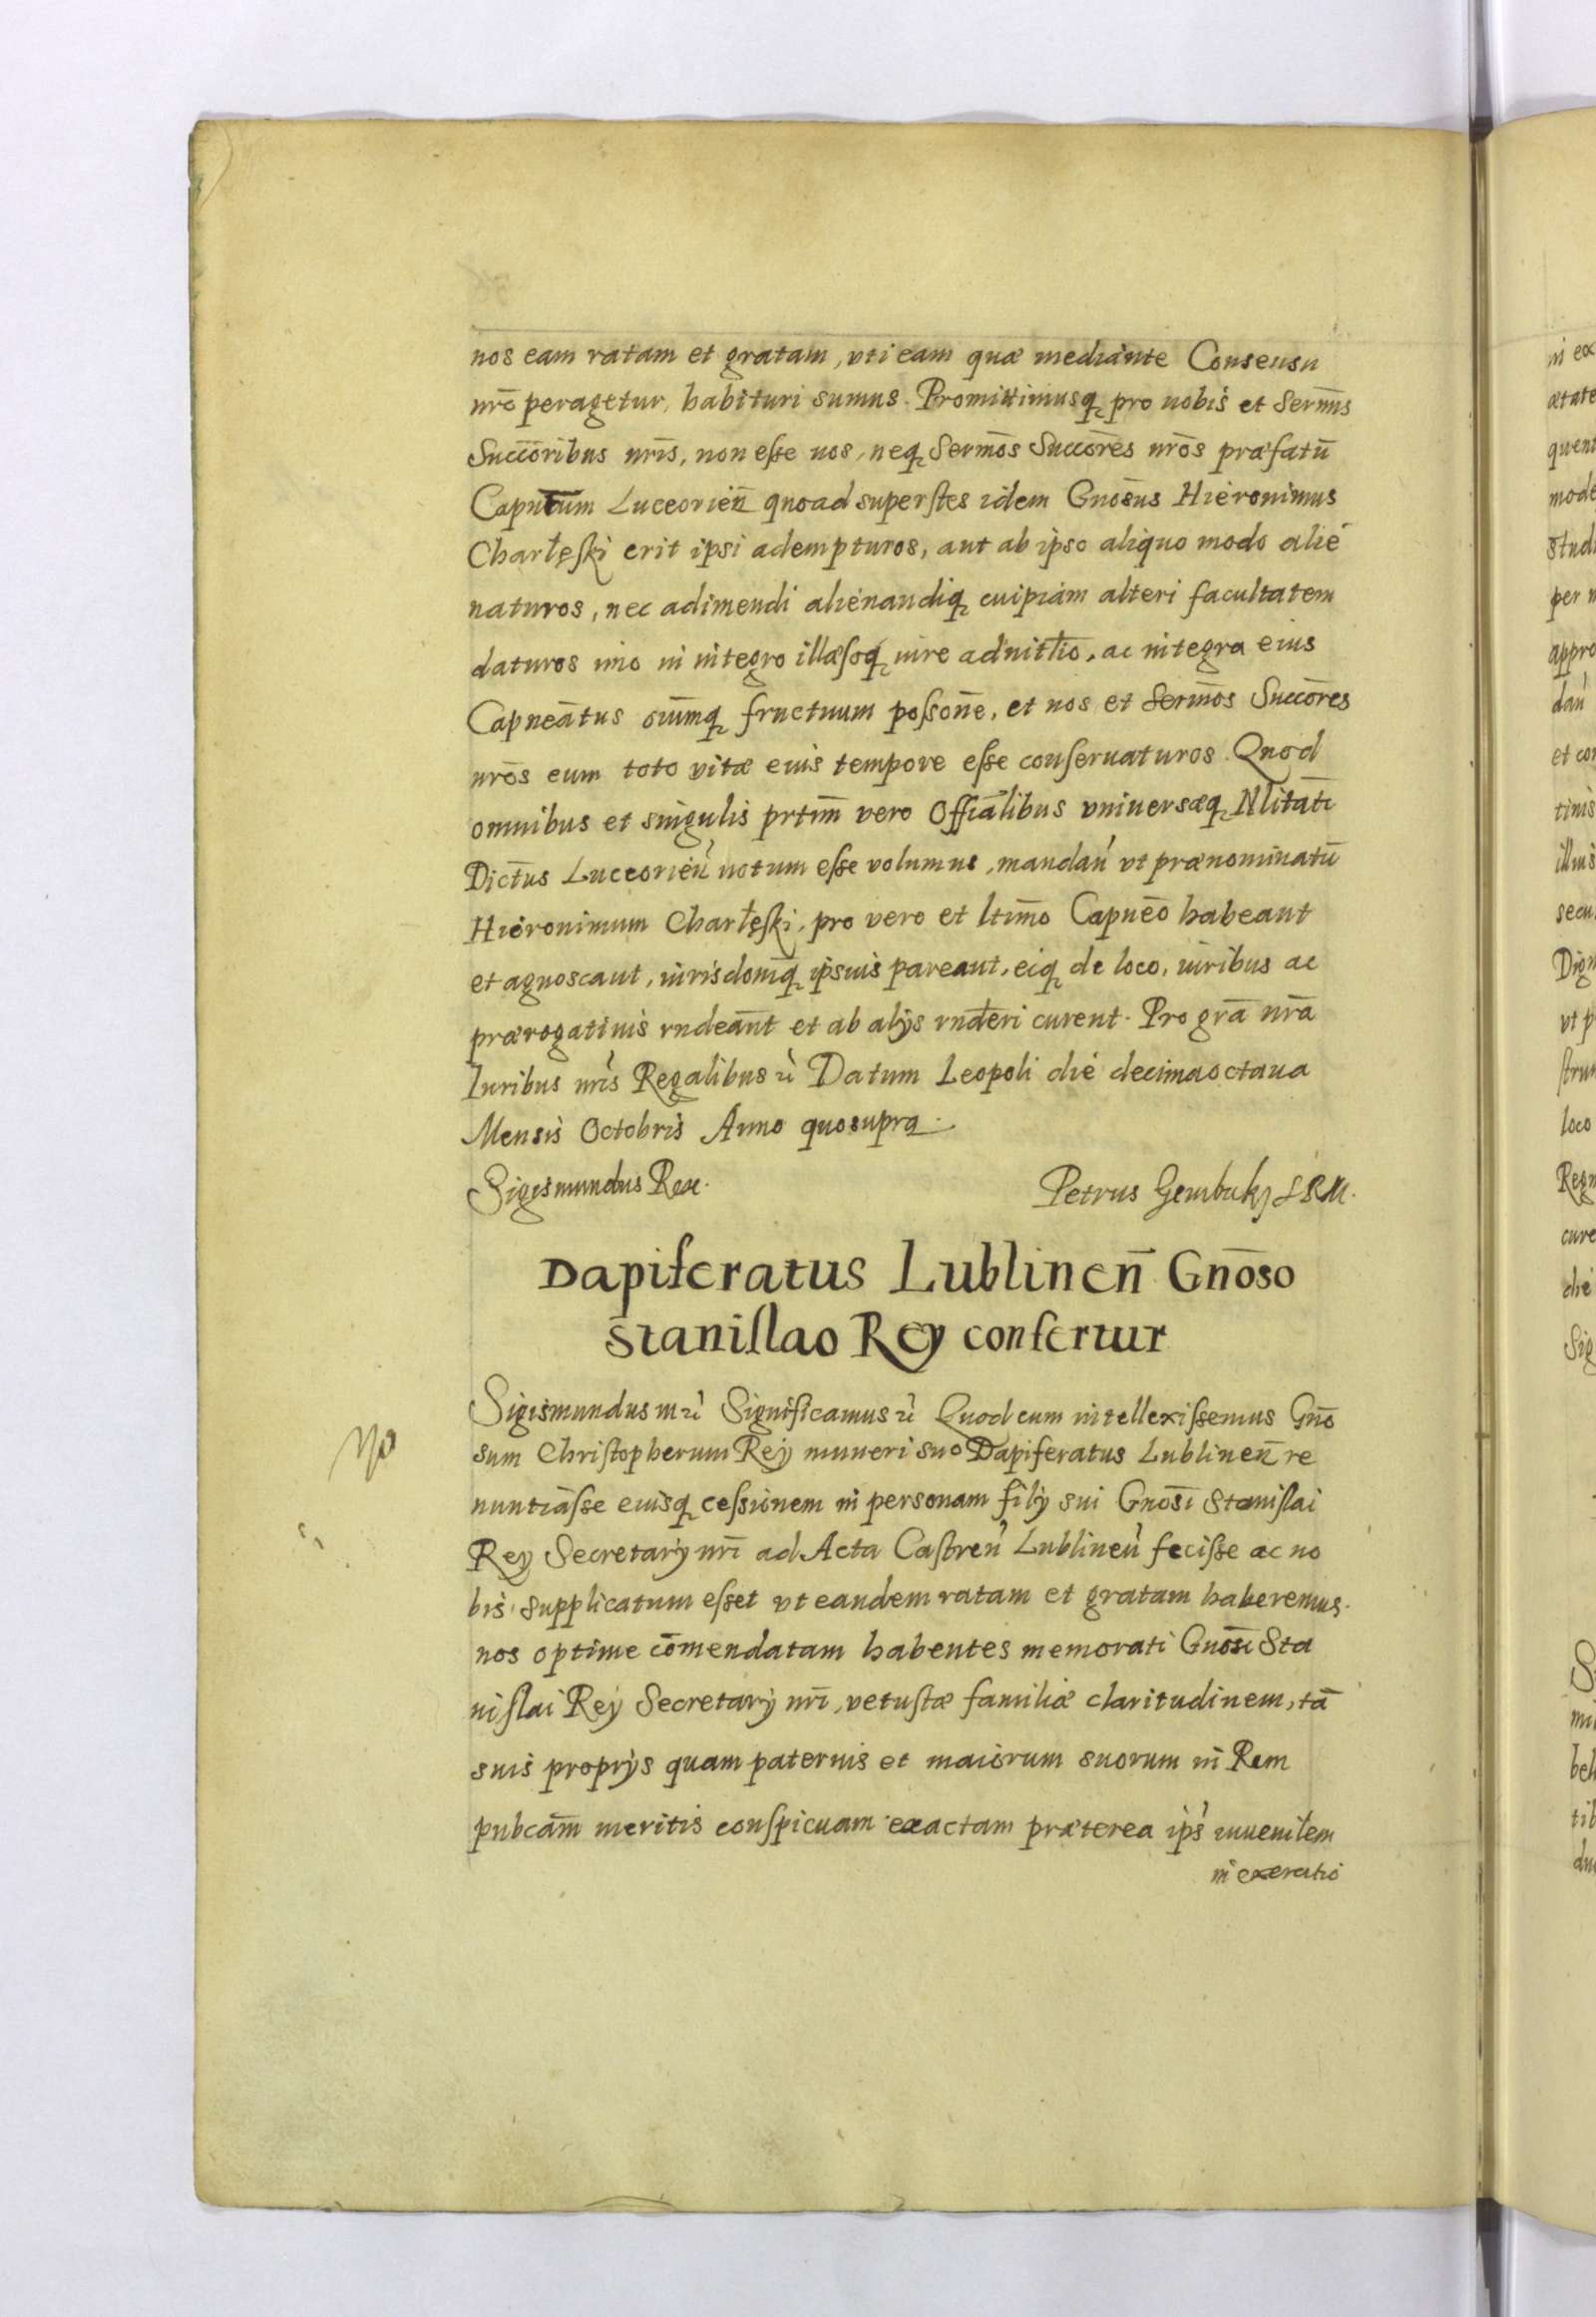 nos eam ratam et gratam, vti eam quæ mediante Consensu
nrō peragetur, habituri sumus. Promittimusq₃ pro nobis et Sermīs
Succōribus nrīs, non eſse nos, neq₃ Sermōs Succōres nrōs præfatū
Capntum Luceorien̄ quoad superſtes idem Gnosūs Hieronimus
Charłęſki erit ipsi adempturos, aut ab ipso aliquo modo alie
naturos, nec adimendi alienandiq₃ cuipiam alteri facultatem
daturos imo in integro illæſoq₃ iure aduitlio, ac integra eius
Capneātus oiūmq₃ fructuum poſsone, et nos et Sermōs Succōres
nrōs eum toto vitæ eius tempore eſse conſeruaturos. Quod
omnibus et singulis prtim̄ vero Offiālibus vniversæq₃ Nlitāti
Dictūs Luceorien̄ notum eſse volumus, mandan̄ vt prænominatū
Hieronimum Charłęſki, pro vero et ltimō Capneō habeant
et agnoscant, iurisdonīq₃ ipsius pareant, eiq₃ de loco, iuribus ac
prærogatiuis rndeānt et ab alijs rndēri curent. Pro grā nrā
Iuribus nrīs Regalibus ꝛ Datum Leopoli die decimaoctaua
Mensis Octobris Anno quosupra.
Sigismundus Rex. Petrus Gembicky S R M.
Dapiferatus Lublinen̄ Gnōso
Staniſlao Rey confertur
Sigismundus III ꝛ Significamus ꝛ Quod cum intellexiſsemus Gnō
sum Chriſtopherum Rey muneri suo Dapiferatus Lublinen̄ re
nuntiaſse eiusq₃ ceſsionem in personam filÿ sui Gnosī Staniſlai
Rey Secretarÿ nrī ad Acta Caſtren̄ Lublinen̄ feciſse ac no
bis supplicatum eſset vt eandem ratam et gratam haberemus.
nos optime cōmendatam habentes memorati Gnosī Sta
niſlai Rey Secretarÿ nrī, vetuſtæ familiæ claritudinem, tā
suis proprÿs quam paternis et maiorum suorum in Rem
pubcām meritis conſpicuam exactam præterea ips̄ iuuenilem
in exercitio